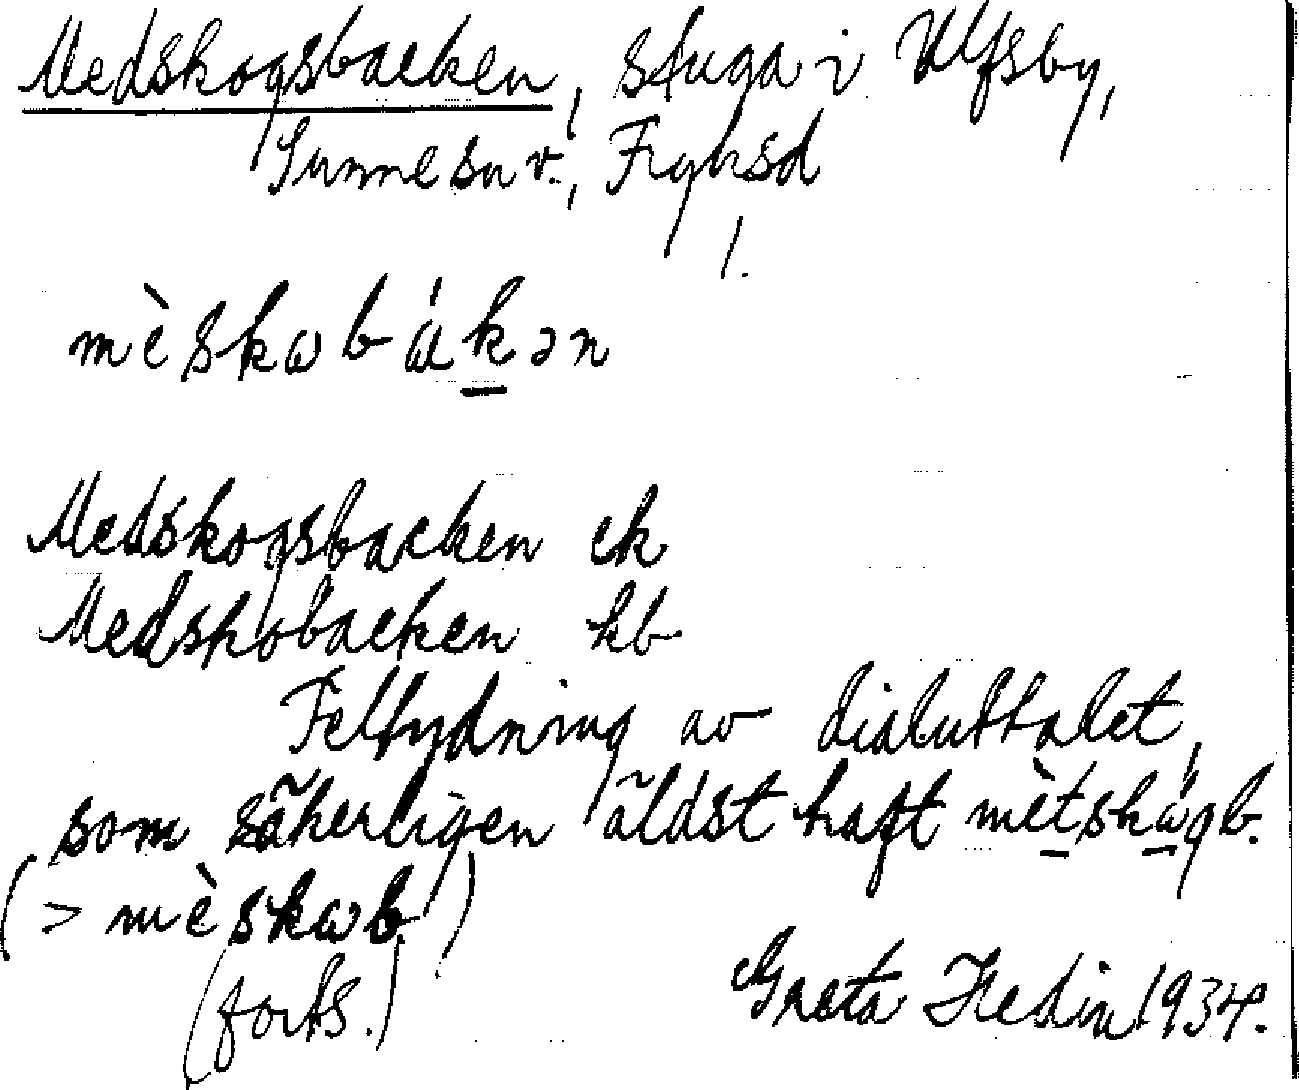 Medskogsbacken, stuga i Ulfsby,
Sunne sn v., Fryksd
1.
mèskωbákən
Medskogsbacken ek
Medskobacken kb
Feltydning av dialuttalet,
som säkerligen äldst haft mètskågb.
(> mèskωb.)
(forts.) Greta Hedin 1934.